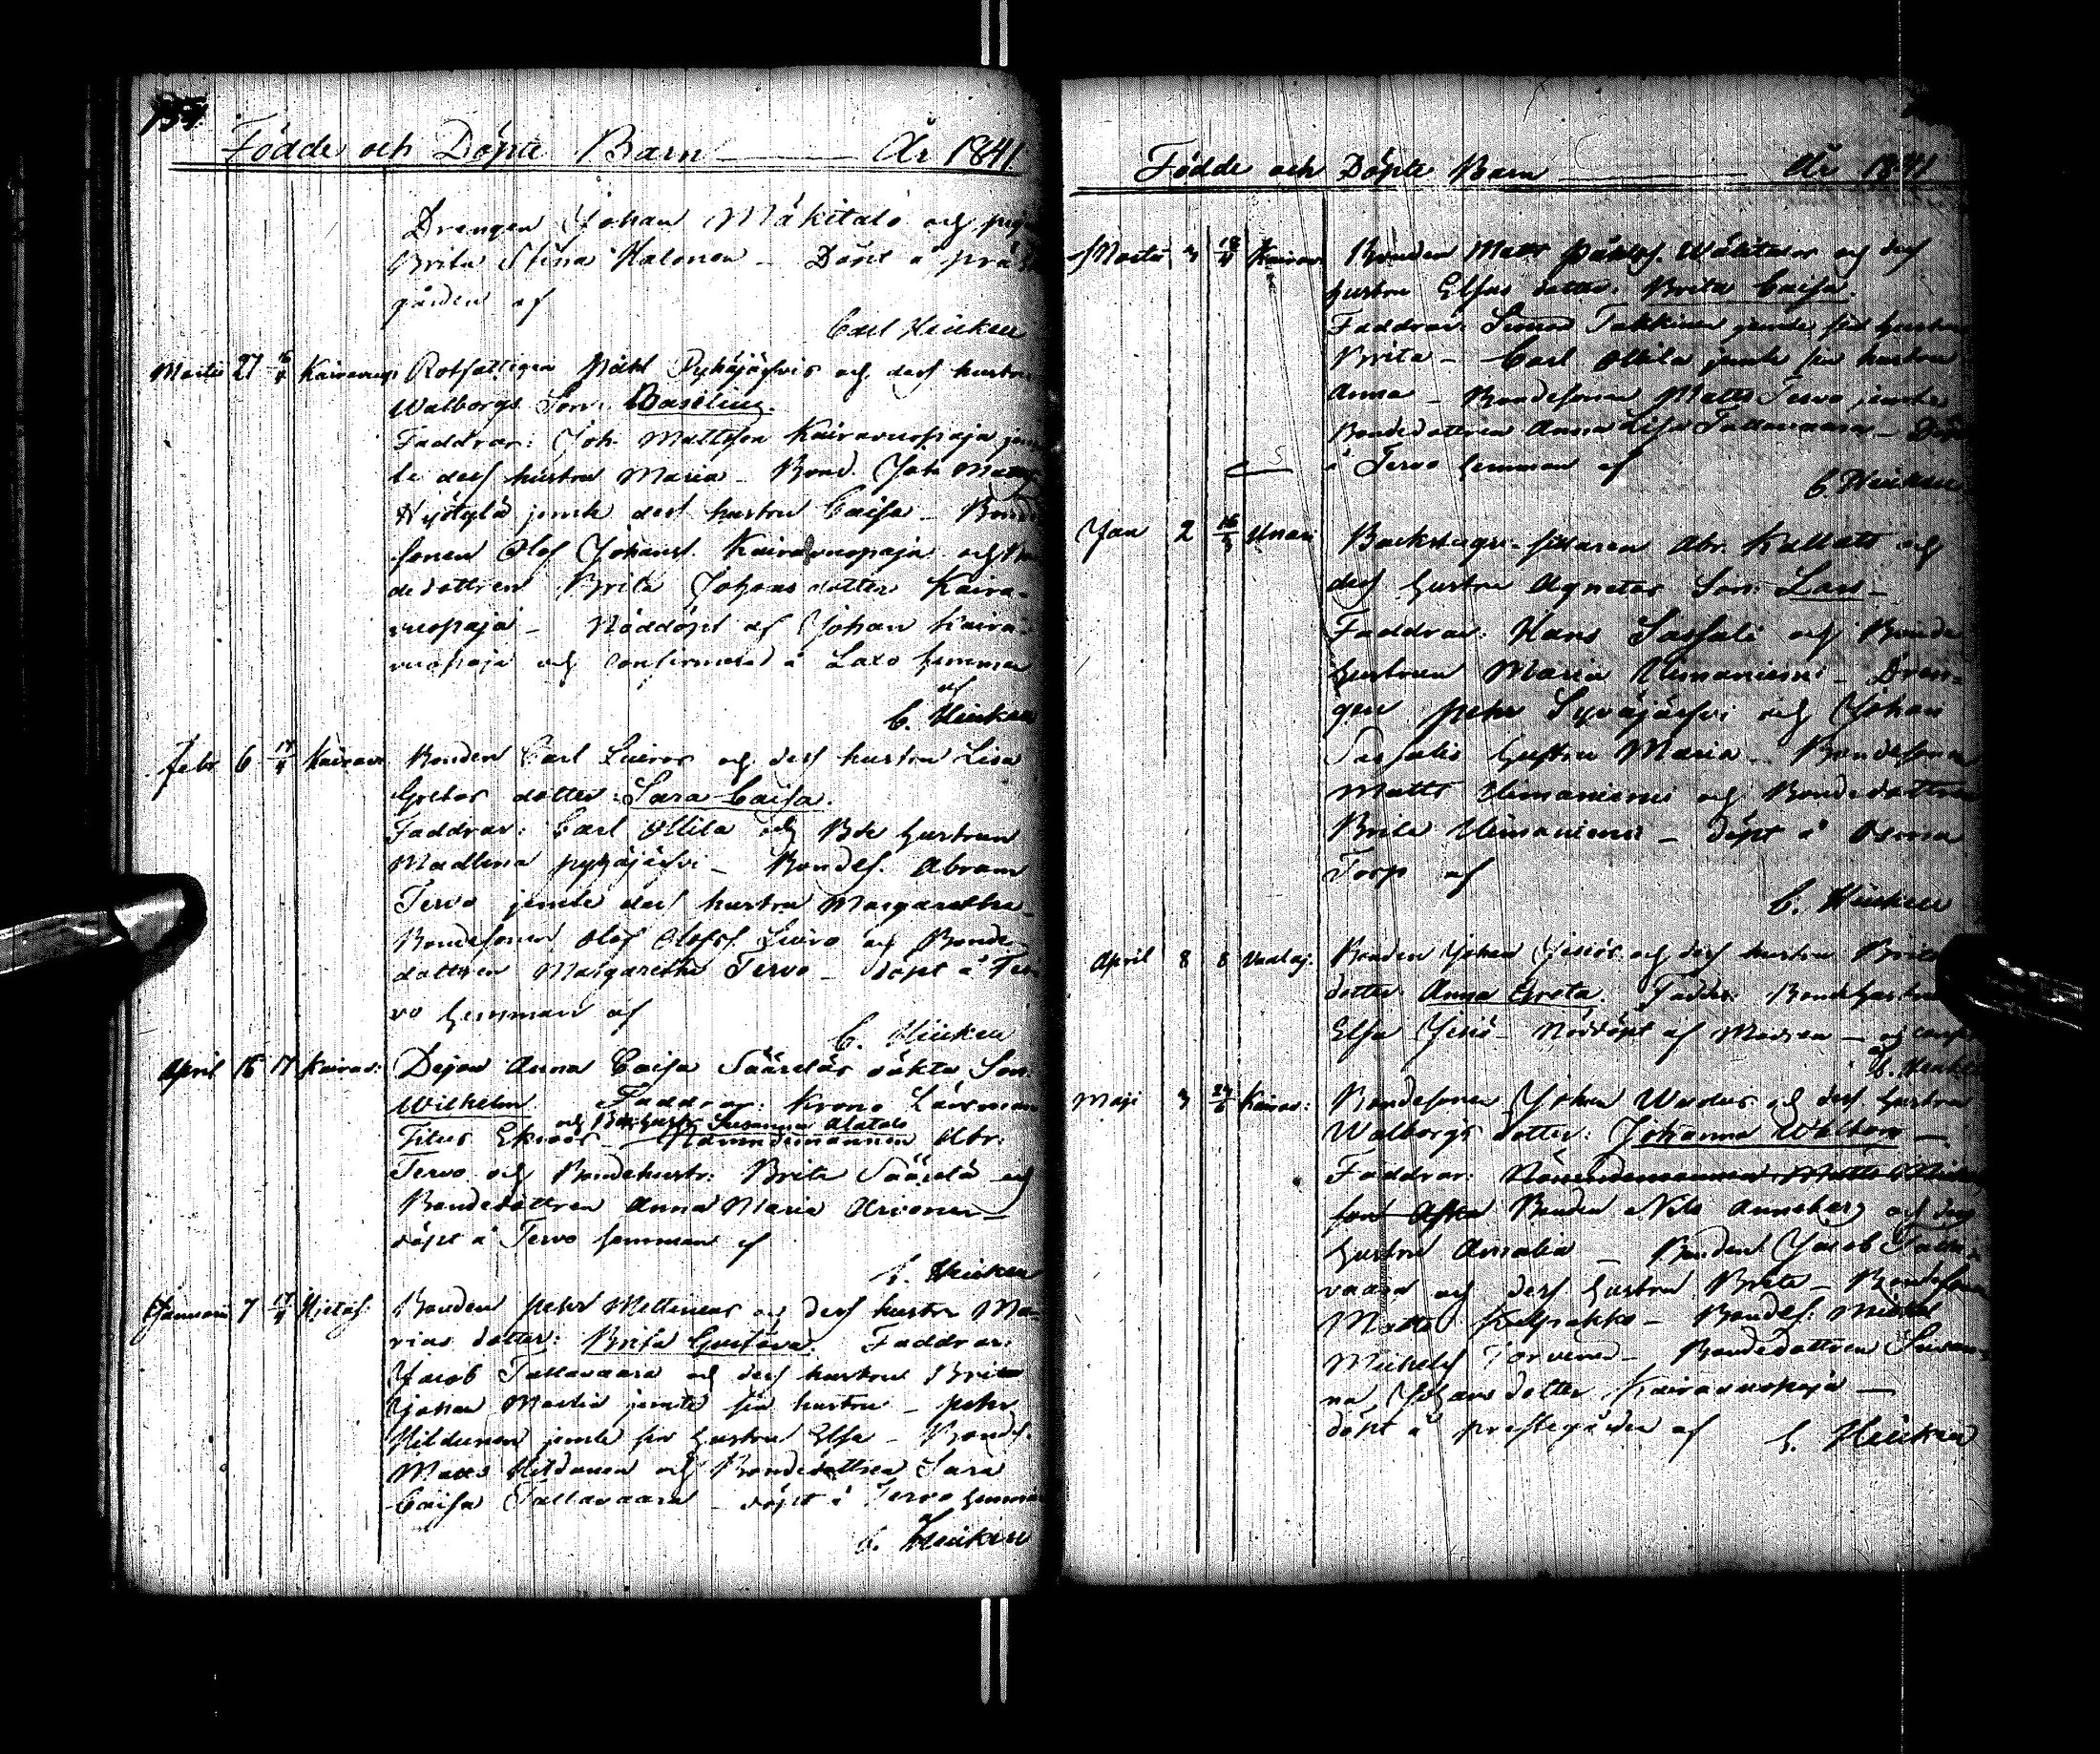 Födde och Döpte Barn — År 1841
Drengen Johan Mäkitalo och pig
Brita Stina Halonen – Döpt å prä
gården af
Carl Heickell
Martii 27 16/4 Kairavuop: Rotfattigen Påhl Pyhäjärvis och dess hustru
Walborgs Son: Basilius.
Faddrar: Joh. Mattsson Kairavuopaja jem
te dess hustru Maria – Bond. Joh. Matts
jemte dess hustru Caisa – Bonde
sonen Olof Johans. Kairavuopaja och Bon
dedottren Brita Johansdotter Kaira-
vuopaja – Nöddöpt af Johan Kaira-
vuopaja och confirmerad å Laxo hemman
af
C. Heickell
Febr 6 17/4 Kairavu Bonden Carl Luiros och dess hustru Lisa
Gretas dotter: Sara Caisa.
Faddrar: Carl Ollila och Bde hustrun
Madlena pyhäjärfvi – Bondes. Abram
Tervo jemte dess hustru Margaretha –
Bondesonen Olof Olofss. Luiro och Bonde-
dottren Margaretha Tervo – döpt å Ter-
vo hemman af
C. Heickell
April 15 17 Kairav: Dejan Anna Caisa Sääreläs oäkta Son:
Wilhelm. Faddrar: Krono Länsman
och Bdehustr: Susanna Alatalo
Titus Ekroos – Nämndemannen Abr:
Tervo och Bondehustr: Brita Säärelä och
Bondedottren Anna Maria Arvonen –
döpt å Tervo hemman af
C. Heickell
Januari 7 17/4 Bonden pehr Mettenens och dess hustru Ma-
rias dotter: Brita Gustava. Faddrar:
Jacob Tallavaara och dess hustru Brita
Johan Martin jemte sin hustru – pehr
Hildunen jemte sin hustru Elsa – Bondes.
Matts Hildunen och Bondedottren Sara
Caisa Tallavaara – döpt å Tervo hemman
C. Heickell
Födde och Döpte Barn — År 1841
Martii 3 18/4 Kairav. Bonden Matts påhlss. Wälitalos och dess
hustru Elsas dotter: Brita Caisa.
Faddrar: Simon Takkinen jemte sin hustru
Brita – Carl Ollila jemte sin hustru
Anna – Bondesonen Matts Tervo jemte
Bondedottren Anna Lisa Tallavaara – Döpt
å Tervo hemman af
C. Heickell
Jan 2 16/5 Unari Backstugu-sittaren Abr. Kallatt och
dess hustru Agnetas Son: Lars –
Faddrar: Hans Sassali och Bonde
hustrun Maria Uimaniemi – Dren-
gen pehr Syväjärfvi och Johan
Sassalis hustru Maria – Bondesonen
Matts Uimaniemi och Bondedottren
Brita Uimaniemi – döpt å
Torp af
C. Heickell
April 8 8 Vaalaj: Bonden Johan Jesiös och dess hustru Britas
dotter Anna Greta. Faddr: Bondehustrun
Elsa Jesiö – Nöddöpt af Modren – och confir
af C. Heickell
Maji 3 Kairav: Bondesonen Johan och dess hustru
Walborgs dotter: Johanna
Faddrar: Nämndemannen Matts
son Bonden Nils Anneberg och dess
hustru Amalia – Bonden Jacob Talla-
vaara och dess hustru Brita – Bondesonen
Matts Kelpakko – Bondes. Michel
Michelss Torvinen – Bondedottren Susan-
na Johansdotter Kairavuopaja –
döpt å prestegården af C. Heickell